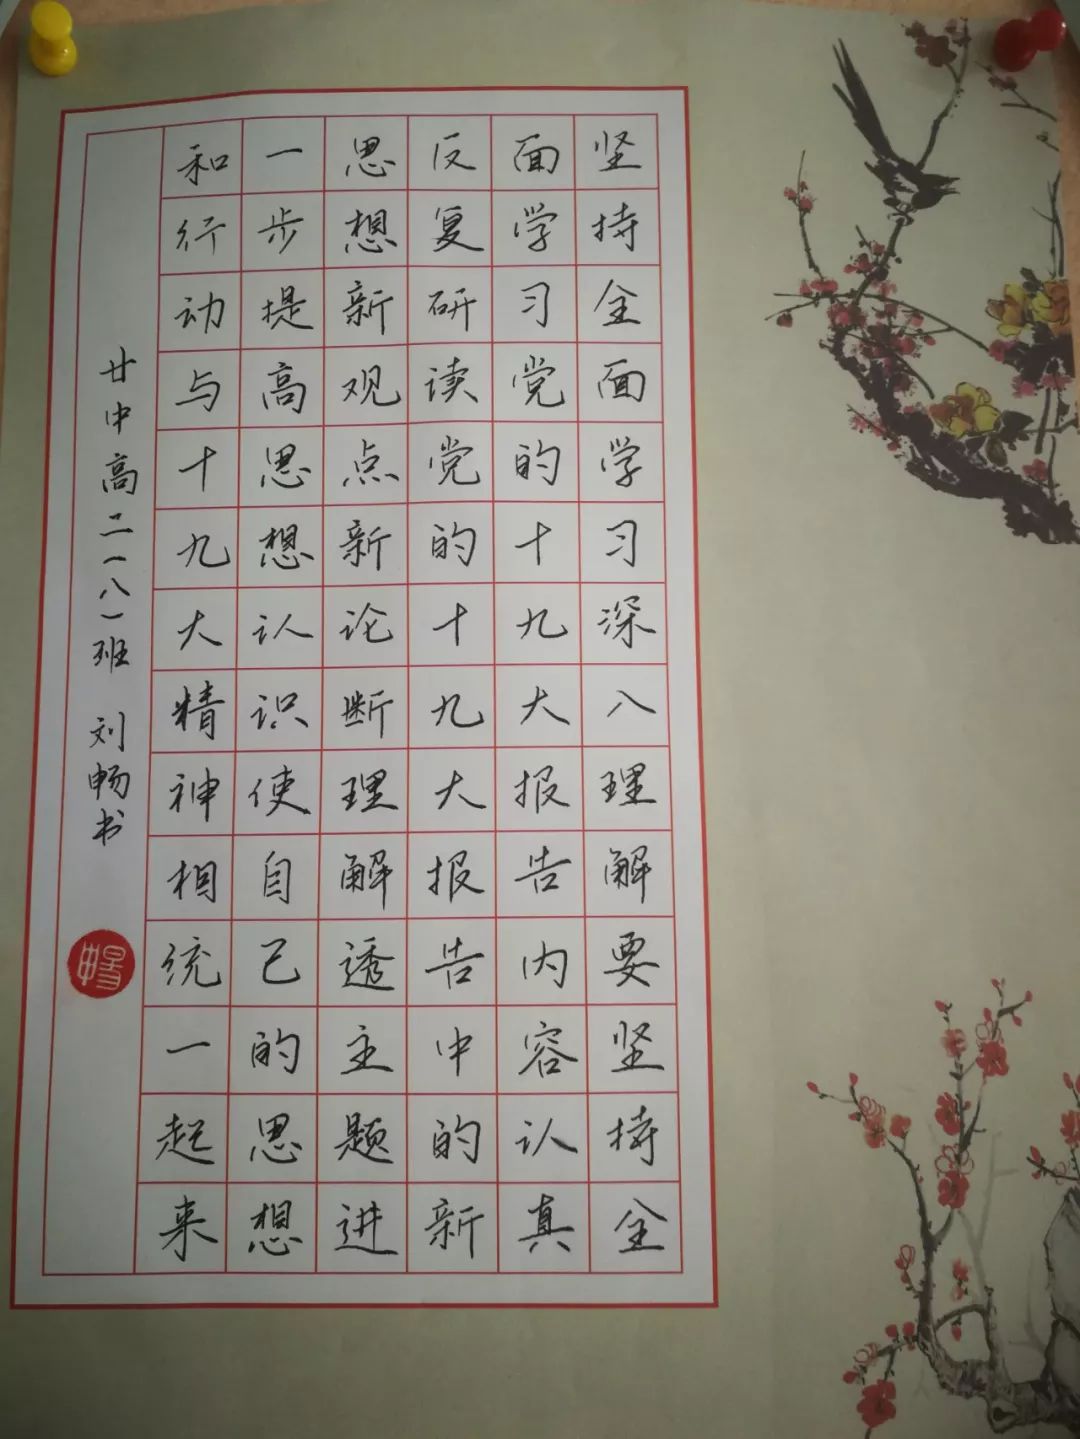 坚持全面学习深入理解要坚持全
面学习党的十九大报告内容认真
反复研读党的十九大报告中的新
思想新观点新论断理解透主题进
一步提高思想认识使自己的思想
和行动与十九大精神相统一起来
廿中高二(八)班 刘畅书
畅